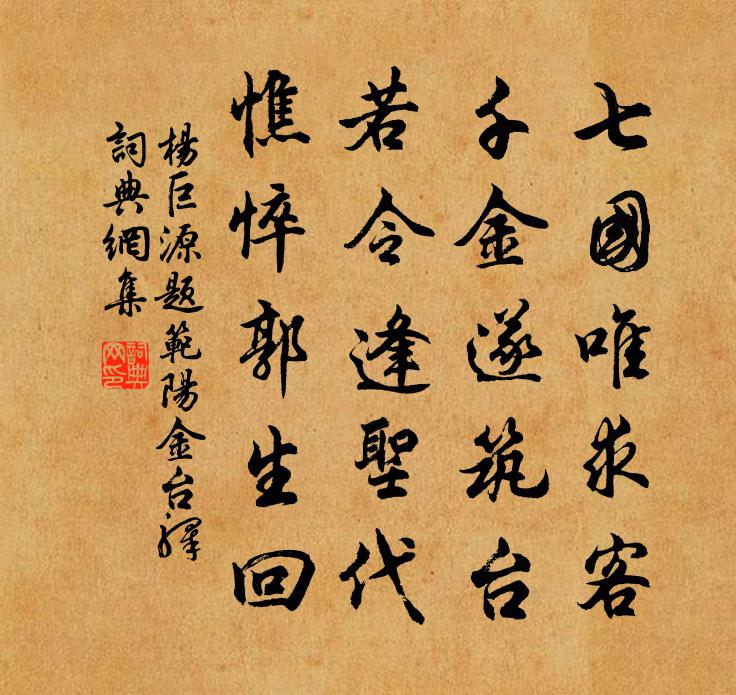 七國唯求客
千金遂筑台
若令逢聖代
憔悴郭生回
楊巨源題範陽金台驛
詞典網集
詞典网印